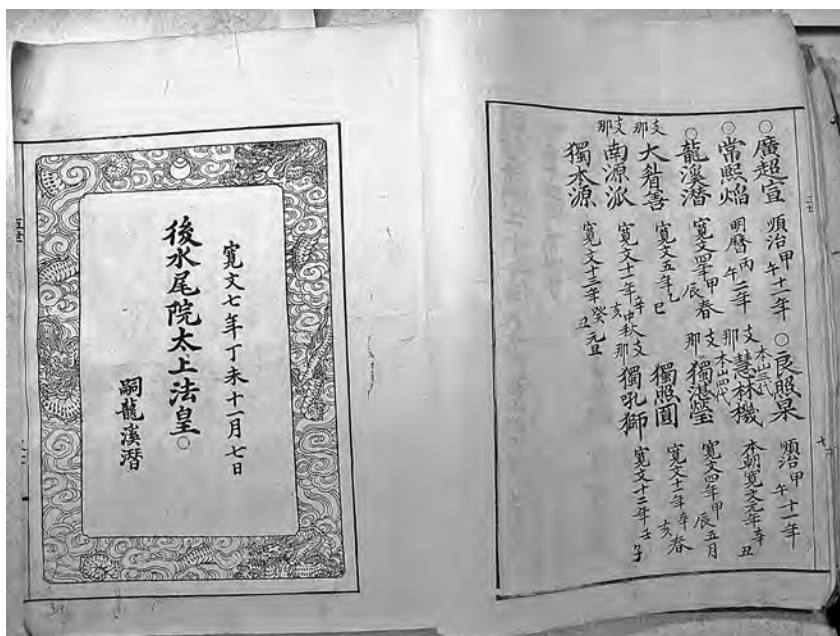 ○廣超宣 順治甲午十一年
○良照杲 順治甲午十一年
○常熙焔 明曆丙午二年
本山三代
支那 慧林機 本朝寛文元年辛丑
○龍溪潛 寛文四年甲辰春
本山四代
支那 獨湛瑩 寛文四年甲辰五月
支那 大眉善 寛文五年乙巳
獨照圓 寛文十一年辛亥春
支那 南源派 寛文十一年辛亥中秋
支那 獨吼獅 寛文十二年壬子
獨本源 寛文十三年癸丑元旦
寛文七年丁未十一月七日
後水尾院太上法皇○
嗣龍溪潛